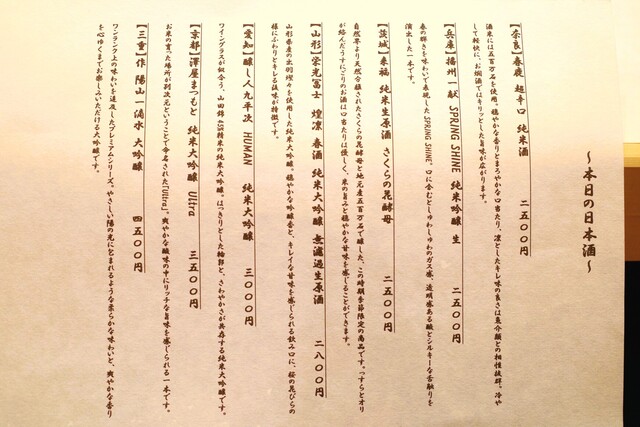 〜本日の日本酒〜
【奈良】春夜 超辛口 純米酒 二五〇〇円
酒米には五百万石を使用。穏やかな香りとまろやかな口当たり、凛としたキレ味の良さは魚介類との相性抜群。冷や
して軽快に、お燗酒ではキリッとした旨味が広がります。
【兵庫】播州一献 SPRING SHINE 純米吟醸 生 二五〇〇円
春の輝きを味わいで表現した SPRING SHINE。口に含むとしゅわしゅわのガス感、透明感ある酸とシルキーな舌触りを
演出した一本です。
【茨城】来福 純米生原酒 さくらの花酵母 二五〇〇円
自然界より天然分離されたさくらの花酵母と地元産五百万石で醸した、この時期季節限定の商品です。うっすらとオリ
が絡んだうすにごりのお酒は口当たりは優しく、米の旨みと穏やかな甘味を感じることができます。
【山形】栄光冨士 煌凛 春酒 純米大吟醸 無濾過生原酒 二八〇〇円
山形県産の出羽燦々を使用した純米大吟醸。穏やかな吟醸香と、キレイな甘味を感じられる飲み口に、桜の花びらの
様にふわりとキレる後味が特徴です。
【愛知】醸し人九平次 HUMAN 純米大吟醸 三〇〇〇円
ワイングラスが似合う、山田錦45%精米の純米大吟醸。はっきりとした輪郭と、さわやかさが共存する純米大吟醸です。
【京都】澤屋まつもと 純米大吟醸 Ultra 三五〇〇円
お米の育った場所が別次元ということで命名された「Ultra」。爽やかな酸味の中にリッチな旨味を感じられる一本です。
【三重】作 陽山一滴水 大吟醸 四五〇〇円
ワンランク上の味わいを追及したプレミアムシリーズ。やさしい陽の光に包まれるような柔らかな味わいと、爽やかな香り
を心ゆくまでお楽しみいただける大吟醸です。